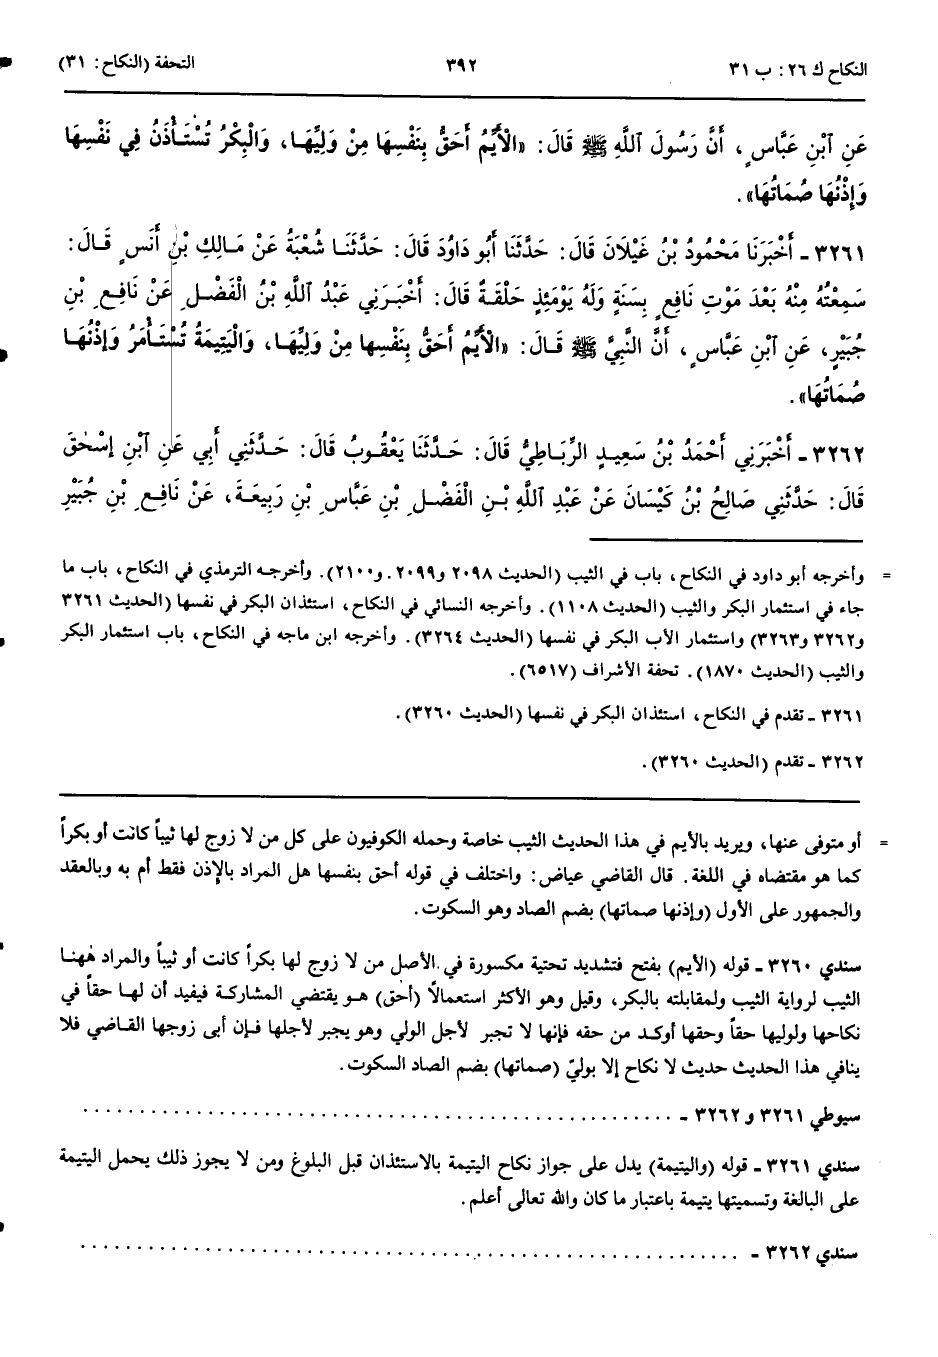 النكاح ك ٢٦: ب ٣١ ٣٩٢ التحفة (النكاح: ٣١)
عَنِ ٱبْنِ عَبَّاسٍ، أَنَّ رَسُولَ ٱللَّهِ ﷺ قَالَ: «الْأَيِّمُ أَحَقُّ بِنَفْسِهَا مِنْ وَلِيِّهَا، وَالْبِكْرُ تُسْتَأْذَنُ فِي نَفْسِهَا
وَإِذْنُهَا صُمَاتُهَا».
٣٢٦١ ـ أَخْبَرَنَا مَحْمُودُ بْنُ غَيْلَانَ قَالَ: حَدَّثَنَا أَبُو دَاوُدَ قَالَ: حَدَّثَنَا شُعْبَةُ عَنْ مَالِكِ بْنِ أَنَسٍ قَالَ:
سَمِعْتُهُ مِنْهُ بَعْدَ مَوْتِ نَافِعٍ بِسَنَةٍ وَلَهُ يَوْمَئِذٍ حَلْقَةٌ قَالَ: أَخْبَرَنِي عَبْدُ ٱللَّهِ بْنُ الْفَضْلِ عَنْ نَافِعِ بْنِ
جُبَيْرٍ، عَنِ ٱبْنِ عَبَّاسٍ، أَنَّ النَّبِيَّ ﷺ قَالَ: «الْأَيِّمُ أَحَقُّ بِنَفْسِها مِنْ وَلِيِّهَا، وَالْيَتِيمَةُ تُسْتَأْمَرُ وَإِذْنُهَا
صُمَاتُهَا».
٣٢٦٢ ـ أَخْبَرَنِي أَحْمَدُ بْنُ سَعِيدٍ الرِّبَاطِيُّ قَالَ: حَدَّثَنَا يَعْقُوبُ قَالَ: حَدَّثَنِي أَبِي عَنِ ٱبْنِ إِسْحٰقَ
قَالَ: حَدَّثَنِي صَالِحُ بْنُ كَيْسَانَ عَنْ عَبْدِ ٱللَّهِ بْنِ الْفَضْلِ بْنِ عَبَّاسِ بْنِ رَبِيعَةَ، عَنْ نَافِعِ بْنِ جُبَيْرِ
= وأخرجه أبو داود في النكاح، باب في الثيب (الحديث ٢٠٩٨ و٢٠٩٩. و٢١٠٠). وأخرجه الترمذي في النكاح، باب ما
جاء في استثمار البكر والثيب (الحديث ١١٠٨). وأخرجه النسائي في النكاح، استئذان البكر في نفسها (الحديث ٣٢٦١
و٣٢٦٢ و٣٢٦٣) واستثمار الأب البكر في نفسها (الحديث ٣٢٦٤). وأخرجه ابن ماجه في النكاح، باب استثمار البكر
والثيب (الحديث ١٨٧٠). تحفة الأشراف (٦٥١٧).
٣٢٦١ ـ تقدم في النكاح، استئذان البكر في نفسها (الحديث ٣٢٦٠).
٣٢٦٢ ـ تقدم (الحديث ٣٢٦٠).
= أو متوفى عنها، ويريد بالأيم في هذا الحديث الثيب خاصة وحمله الكوفيون على كل من لا زوج لها ثيباً كانت أو بكراً
كما هو مقتضاه في اللغة. قال القاضي عياض: واختلف في قوله أحق بنفسها هل المراد بالإذن فقط أم به وبالعقد
والجمهور على الأول (وإذنها صماتها) بضم الصاد وهو السكوت.
سندي ٣٢٦٠ ـ قوله (الأيم) بفتح فتشديد تحتية مكسورة في الأصل من لا زوج لها بكراً كانت أو ثيباً والمراد ههنا
الثيب لرواية الثيب ولمقابلته بالبكر، وقيل وهو الأكثر استعمالًا (أحق) هو يقتضي المشاركة فيفيد أن لها حقاً في
نكاحها ولوليها حقاً وحقها أوكد من حقه فإنها لا تجبر لأجل الولي وهو يجبر لأجلها فإن أبى زوجها القاضي فلا
ينافي هذا الحديث حديث لا نكاح إلا بوليّ (صماتها) بضم الصاد السكوت.
سيوطي ٣٢٦١ و ٣٢٦٢ ـ . . . . . . . . . . . . . . . . . . . . . . . . . . . . . .
سندي ٣٢٦١ ـ قوله (واليتيمة) يدل على جواز نكاح اليتيمة بالاستئذان قبل البلوغ ومن لا يجوز ذلك يحمل اليتيمة
على البالغة وتسميتها يتيمة باعتبار ما كان والله تعالى أعلم.
سندي ٣٢٦٢ ـ . . . . . . . . . . . . . . . . . . . . . . . . . . . . . .